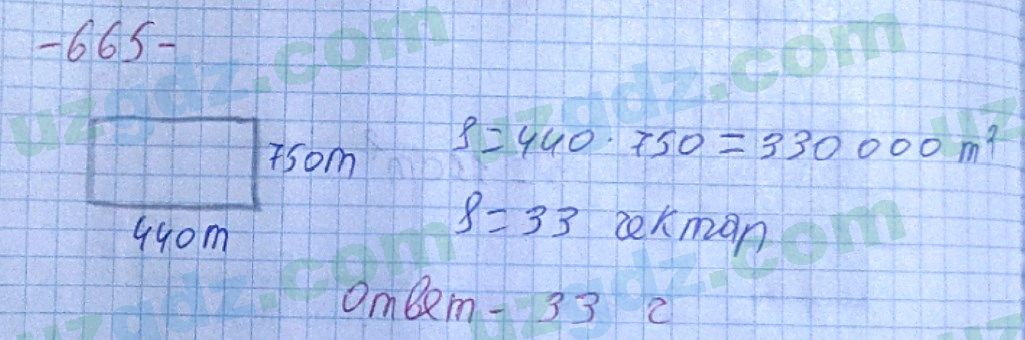 -665-
750m
S=440·750=330000 m²
440m
S=33 гектар
Ответ - 33 г
uzgdz.com
uzgdz.com
uzgdz.com
uzgdz.com